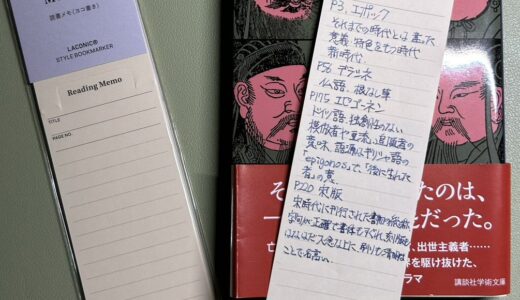 読書メモ(ヨコ書き)
LACONIC®
STYLE BOOKMARKER
Reading Memo
TITLE
PAGE NO.
P3. エポック
それまでの時代とは異った
意義・特色をもつ時代
新時代.
P56 デラシネ
仏語. 根なし草
P175 エピゴーネン
ドイツ語. 独創性のない
模倣者や亜流、追随者の
意味. 語源はギリシャ語の
「epigonos」で、「後に生れた
者」の意.
P220 宋版
宋時代に刊行された書物の総称
字句が正確で書体もすぐれ、刻版も
ことで名高い.
たのは、
だった。
出世主義者……
界を駆け抜けた、
ラマ
講談社学術文庫